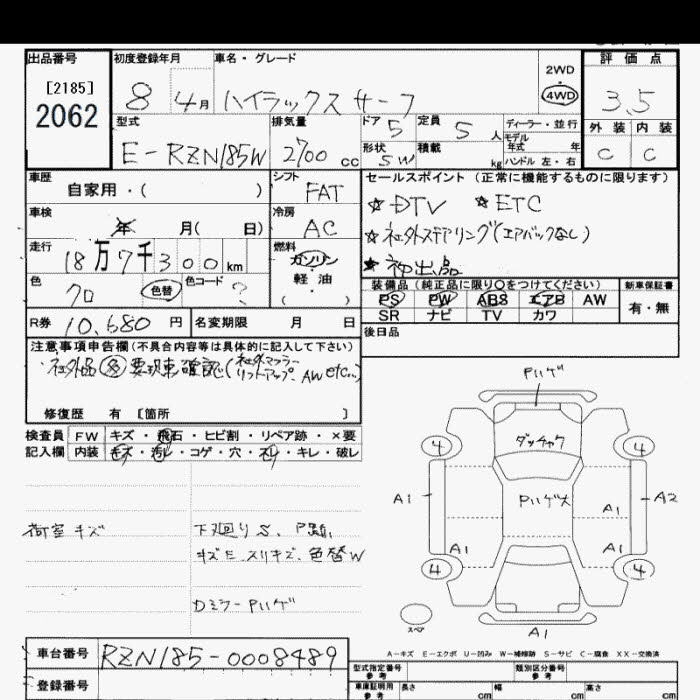 出品番号 初度登録年月 車名・グレード 評価点
[2185]
2062
8 4月 ハイラックス サーフ
2WD
4WD
3.5
型式 排気量 ドア 5 定員 5人 ディーラー・並行
モデル年式 年
外装 内装
E-RZN185W 2700 cc
形状 SW 積載 kg ハンドル 左・右
C C
車歴 自家用・( )
シフト FAT
セールスポイント (正常に機能するものに限ります)
☆DTV ☆ETC
車検 年 月( 日)
冷房 AC
☆社外ステアリング(エアバックなし)
走行 18万7千300km
燃料 ガソリン・軽油・( )
★初出品
色 クロ 色替 色コード ?
装備品 (純正品に限り○をつけてください) 新車保証書
PS PW ABS エアB AW
SR ナビ TV カワ
有・無
R券 10,680円 名変期限 月 日
後日品
注意事項申告欄(不具合内容等は具体的に記入して下さい)
社外品多 要現車確認(社外マフラー
リフトアップ、AW etc...)
修復歴 有 [箇所 ]
検査員 FW キズ・飛石・ヒビ割・リペア跡・×要
記入欄 内装 キズ・汚レ・コゲ・穴・スレ・キレ・破レ
荷室 キズ
下廻りS、
キズE、スリキズ、色替W
Dミラー Pハゲ
Pハゲ
ダッチャク
4 4
Pハゲ大
A1 A1 A2
A1 A1
4 4
スペア
A1
A-キズ E-エクボ U-凹み W-補修跡 S-サビ C-腐食 XX-交換済
車台番号 RZN185-0008489
登録番号
型式指定番号 参考 類別区分番号 参考
車庫証明用 参考 長さ cm 幅 cm 高さ cm